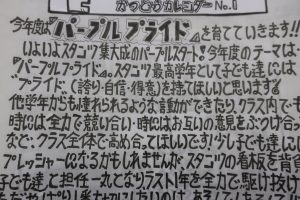 かつどうカレンダー No.1
今年度は『パープルプライド』を育てていきます!!
いよいよスタニツ集大成のパープルスタート!今年度のテーマは
『パープルプライド』。スタニツ最高学年として子ども達には
"プライド"(誇り・自信・得意)を持てほしいと思います。
他学年からも憧れられるような言動ができたり、クラス内でも
時には全力で競い合い・時にはお互いの意見をぶつけ合う
など、クラス全体で高め合ってほしいです!少し子ども達には
プレッシャーになるかもしれませんが、スタニツの看板を背負
子ども達と担任一丸となりラスト1年を全力で駆け抜け